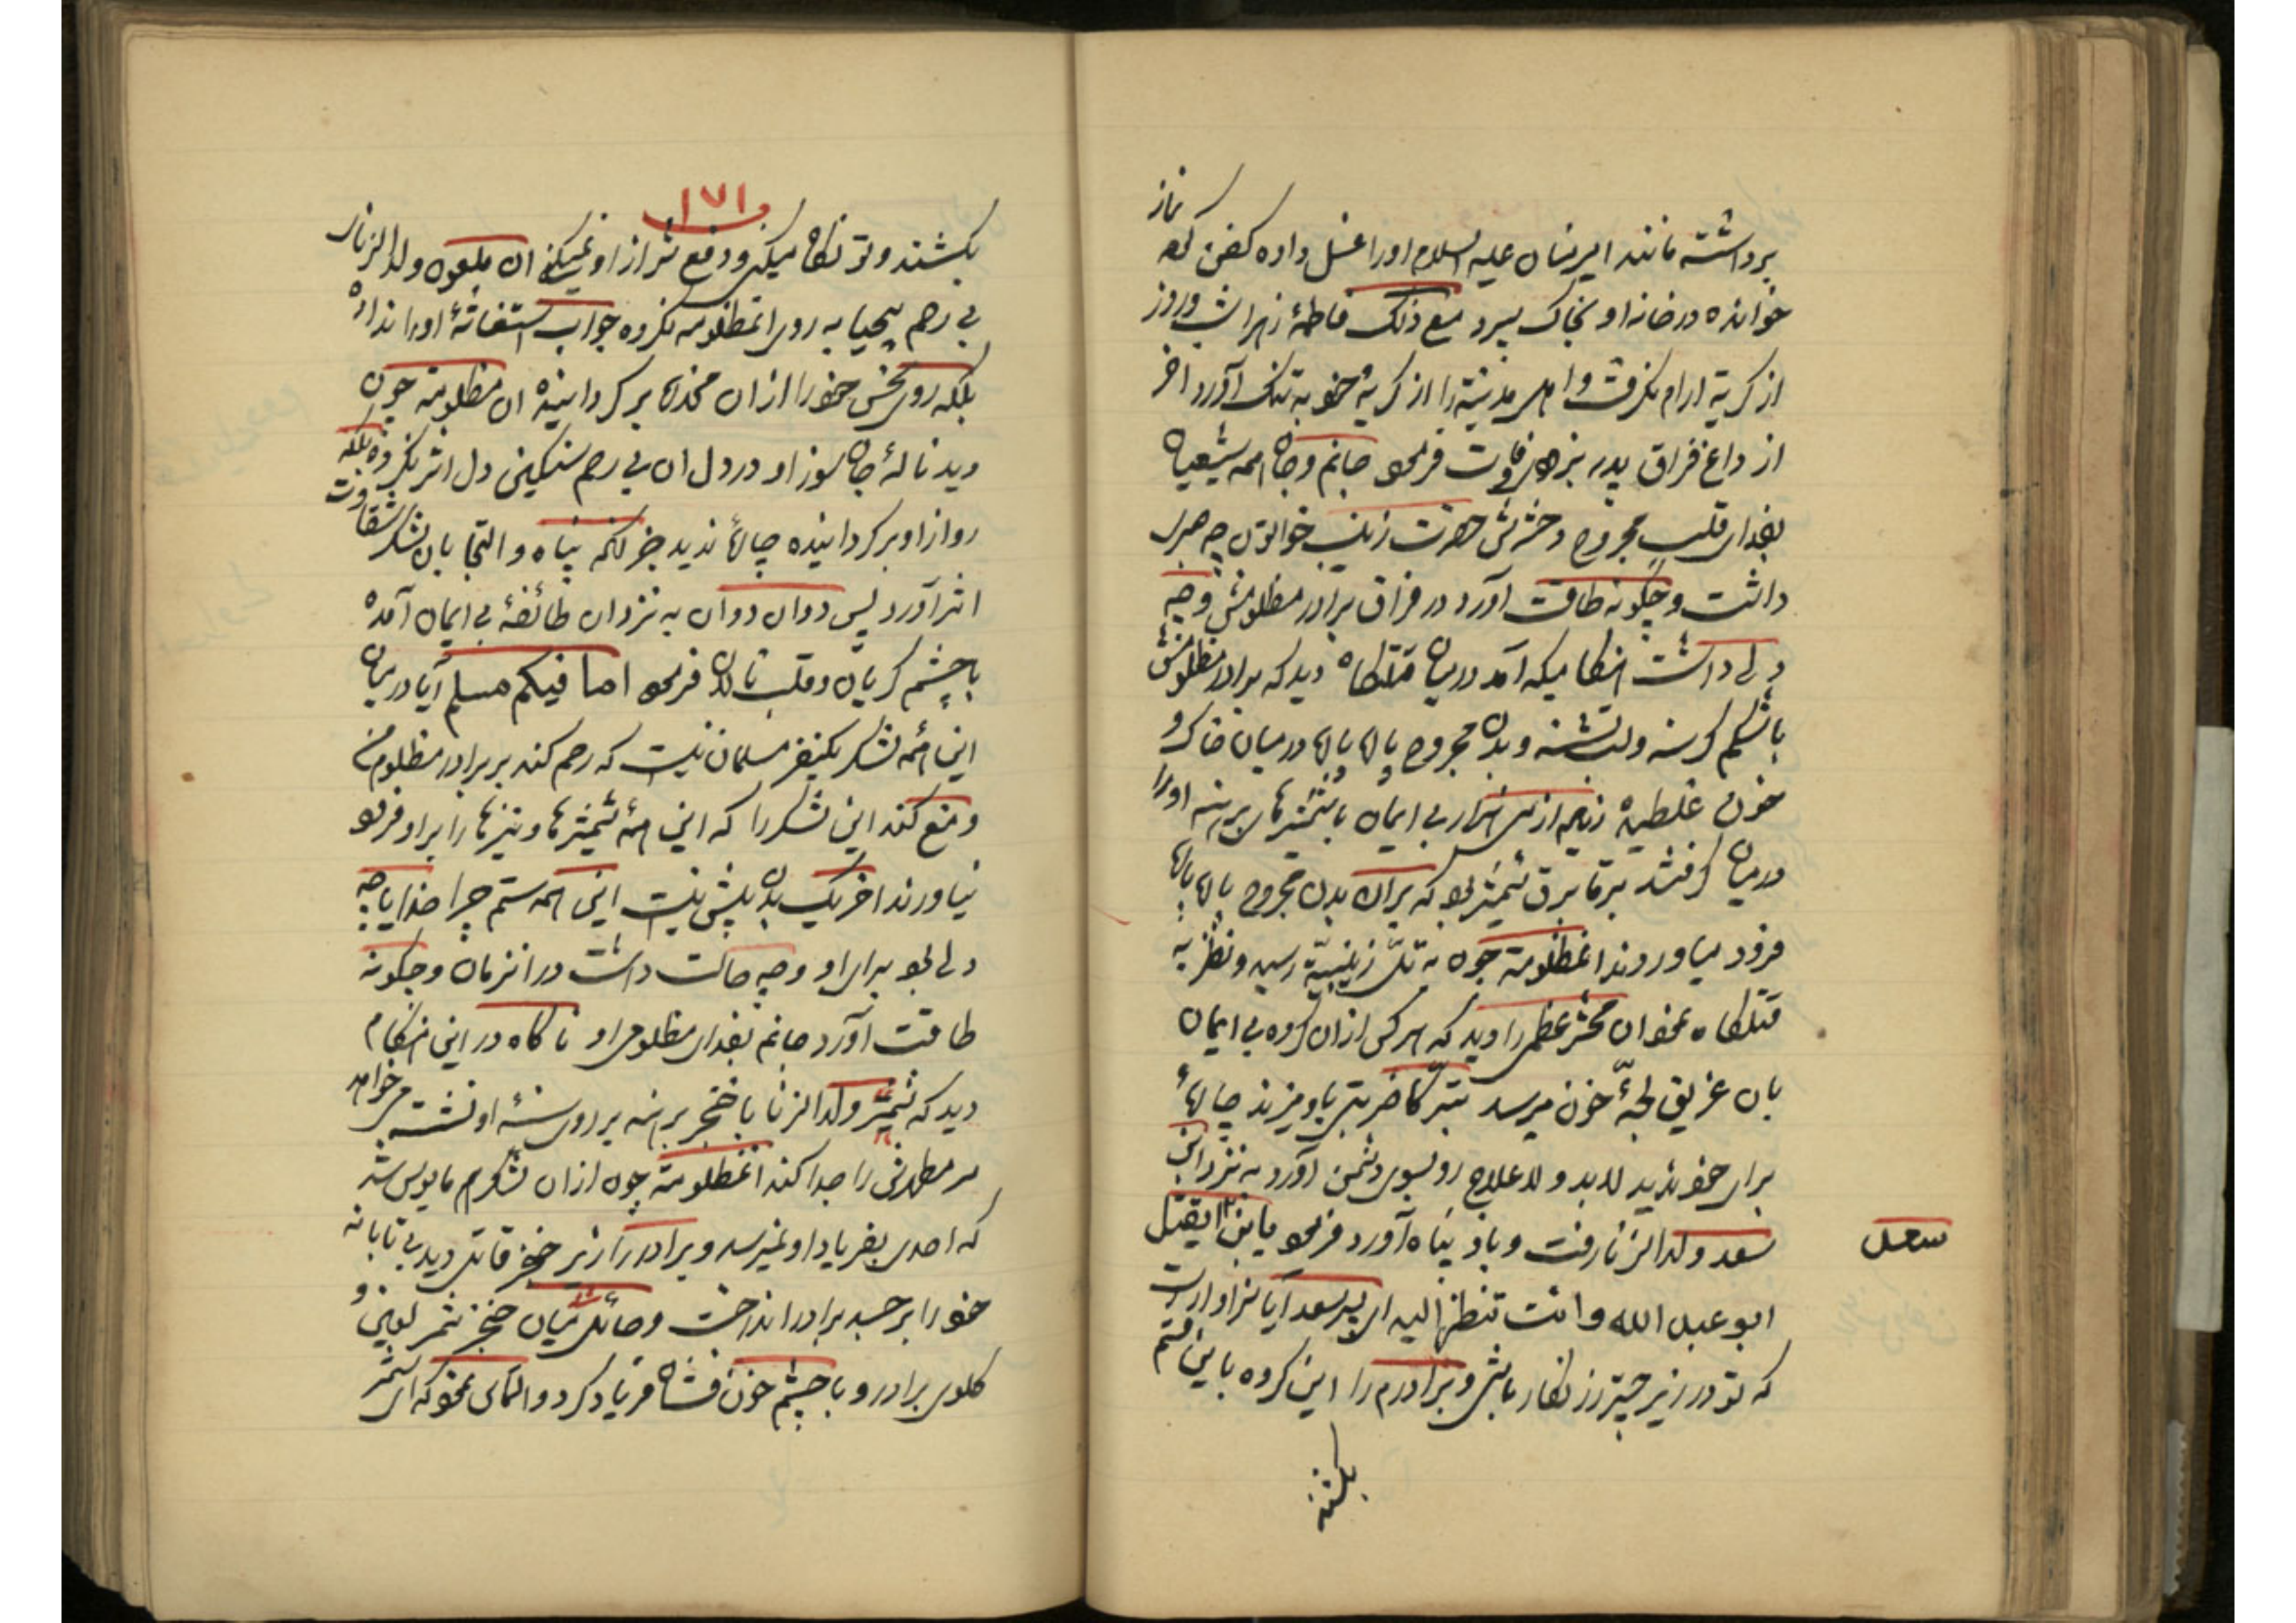 برداشته مانند امیرمنان علیه السلام اورا غسل داده کفن کرده نماز
خوانده در خانه او بخاک سپرد مع ذلک فاطمهٔ زهرا شب و روز
از کریه ارام نکرفت و اهل مدینه را از کریهٔ خود به تنک آورد اخر
از داغ فراق پدر بزرکوار وفات فرمود جانم و جان همه شیعیان
بفدای قلب مجروح دخترش حضرت زینب خواتون چه صبری
داشت و چکونه طاقت آورد در فراق برادر مظلومش و چه
دلی داشت هنکامیکه آمد در میان قتلکاه دید که برادر مظلومش
باشکم کرسنه و لب تشنه و بدن مجروح پاره پاره در میان خاک و
خون غلطیده اشرار بی ایمان با شمشیرهای برهنه اورا
در میان کرفتند برقا برق شمشیر بود که بران بدن مجروح پاره پاره
فرود میاوردند انمظلومه چون به تلّ زینبیّه رسید و نظر به
قتلکاه نمود ان محشر عظمی را دید که هر کس از ان کروه بی ایمان
بان غریق لجّهٔ خون میرسد تبرّکا ضربتی باو میزند چارهٔ
برای خود ندید لابد و لاعلاج رو بسوی دشمن آورد به نزد ابن
سعد ولدالزنا رفت و باو پناه آورد فرمود یابن سعد ایقتل
سعد
ابو عبد الله و انت تنظر الیه ای پسر سعد آیا سزاوار است
که تو در زیر چتر زرنکار باشی و برادرم را این کروه باین ستم
بکشند
۱۷۱
بکشند و تو نکاه میکنی و دفع شر از او نمیکنی ان ملعون ولدالزنای
بی رحم بیحیا به روی انمظلومه نکرده جواب استغاثهٔ اورا نداد
بلکه روی نحس خود را از ان مخدره بر کردانیده ان مظلومه چون
دید نالهٔ جان سوز او در دل ان بی رحم سنکین دل اثر نکرده بلکه
رو از او برکردانیده چارهٔ ندید جز انکه پناه و التجا بان لشکر شقاوت
اثر آورد پس دوان دوان به نزد ان طائفهٔ بی ایمان آمده
با چشم کریان و قلب نالان فرمود اما فیکم مسلم آیا در میان
این همه لشکر یکنفر مسلمان نیست که رحم کند بر برادر مظلوم من
و منع کند این لشکر را که این همه شمشیرها و نیزها را بر او فرود
نیاورند اخر یک بدن بیش نیست این همه ستم چرا خدایا چه
دلی بود برای او و چه حالت داشت در انزمان و چکونه
طاقت آورد جانم بفدای مظلومی او ناکاه در این هنکام
دید که شمر ولدالزنا با خنجر برهنه بر روی سینهٔ او نشسته میخواهد
سر مطهرش را جدا کند انمظلومه چون از ان لشکر هم مایوس شد
که احدی بفریاد او نمیرسد و برادر را زیر خنجر قاتل دید بی تابانه
خود را بر جسد برادر انداخت و حائل شد میان خنجر شمر لعین و
کلوی برادر و با چشم خون فشان فریاد کرد و التماس نمود که ای شمر